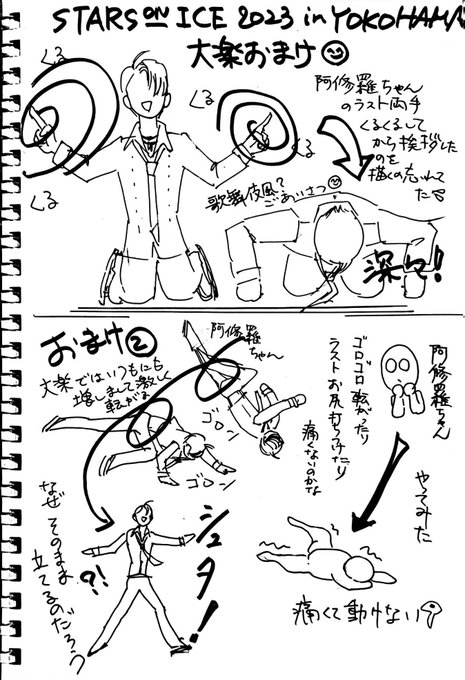 STARS on ICE 2023 in YOKOHAMA
大楽おまけ
くる
くる
くる
くる
くる
阿修羅ちゃん
のラスト両手
くるくるして
から挨拶した
のを
描くの忘れて
た
歌舞伎風?
ごあいさつ
深々!
おまけ②
大楽ではいつもにも
増しまして激しく
転がる
阿修羅
ちゃん
ゴロン
ゴロン
シュタ!
なぜそのまま
立てるのだろう
?!
阿修羅ちゃん
ゴロゴロ転がったり
ラストお尻打つけたり
痛くないのかな
やってみた
痛くて動けない